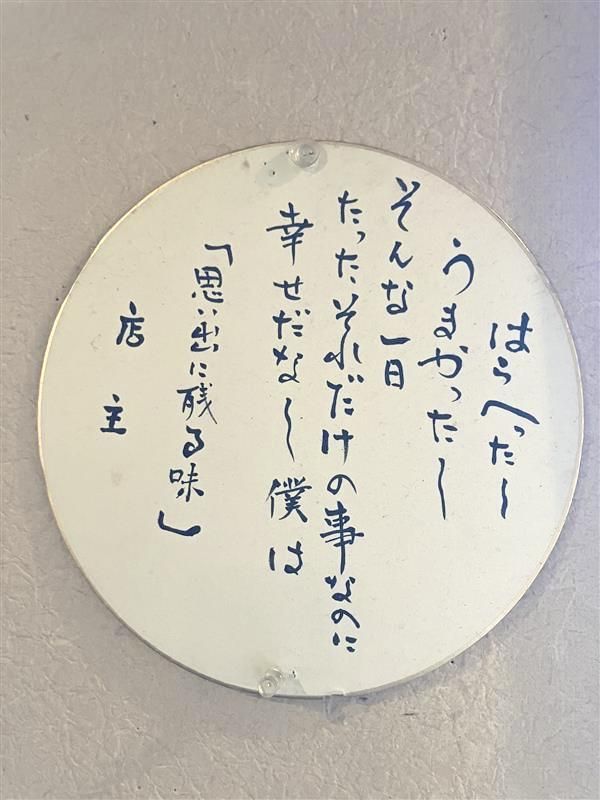 はらへった〜
うまかった〜
そんな一日
たったそれだけの事なのに
幸せだな〜僕は
「思い出に残る味」
店主